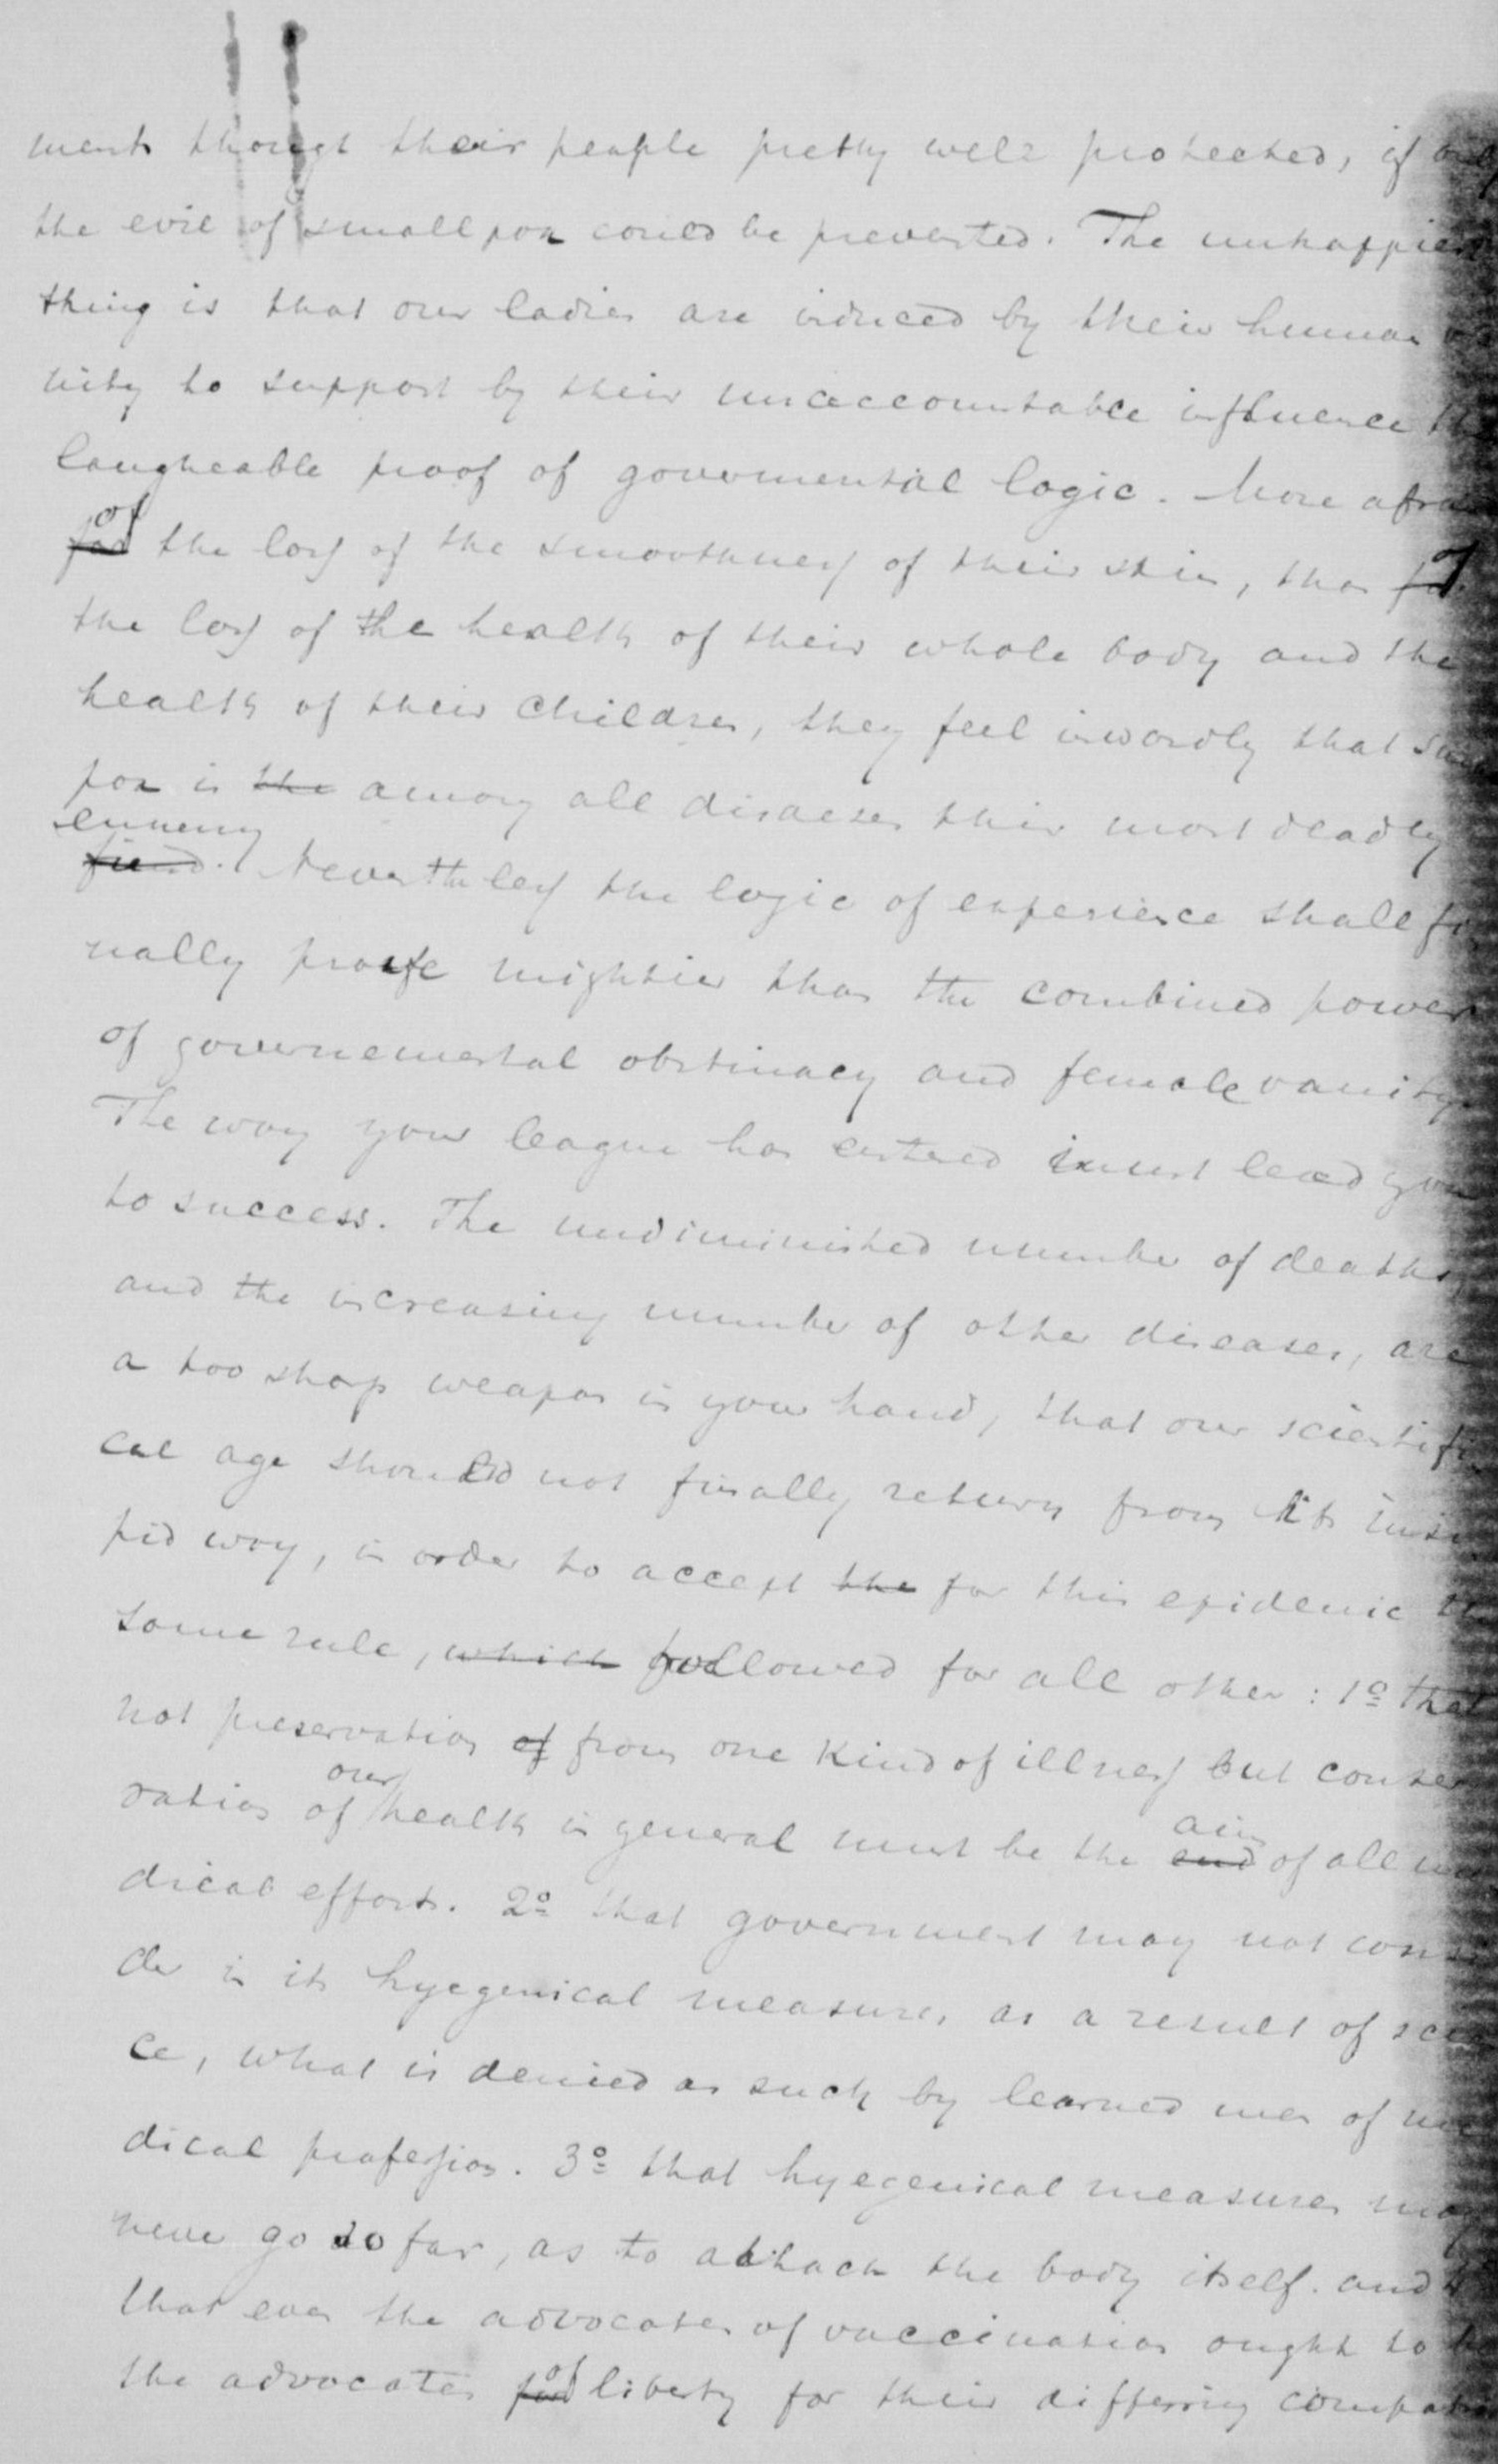 ments though their people pretty well protected, if only
the evil of small pox could be prevented. The unhappiest
thing is that our ladies are induced by their human va
nity to support by their unaccountable influence the
laugheable proof of govermental logic. More afraid
of the loss of the smoothness of their skin, than of
the loss of the health of their whole body and the
health of their children, they feel inwardly that small
pox is the among all diseases their most deadly
ennemy
fiend. Nevertheless the logic of experience shall fi
nally prove mightier than the combined power
of governemental obstinacy and female vanity.
The way your league has entered must lead you
to success. The undiminished number of deaths,
and the increasing number of other diseases, are
a too sharp weapon in your hand, that our scientifi
cal age should not finally return from its insi
pid way, in order to accept the for this epidemic the
same rule, which followed for all other: 1º that
not preservation of from one kind of illness but conser
vation of our health in general must be the aim end of all me
dical efforts. 2º that government may not consi
der in its hyegenical measures, as a result of scien
ce, what is denied as such by learned men of me
dical profession. 3º that hyegenical measures may
never go so far, as to attack the body itself. and
that even the advocates of vaccination ought to be
the advocates of liberty for their differing compatri